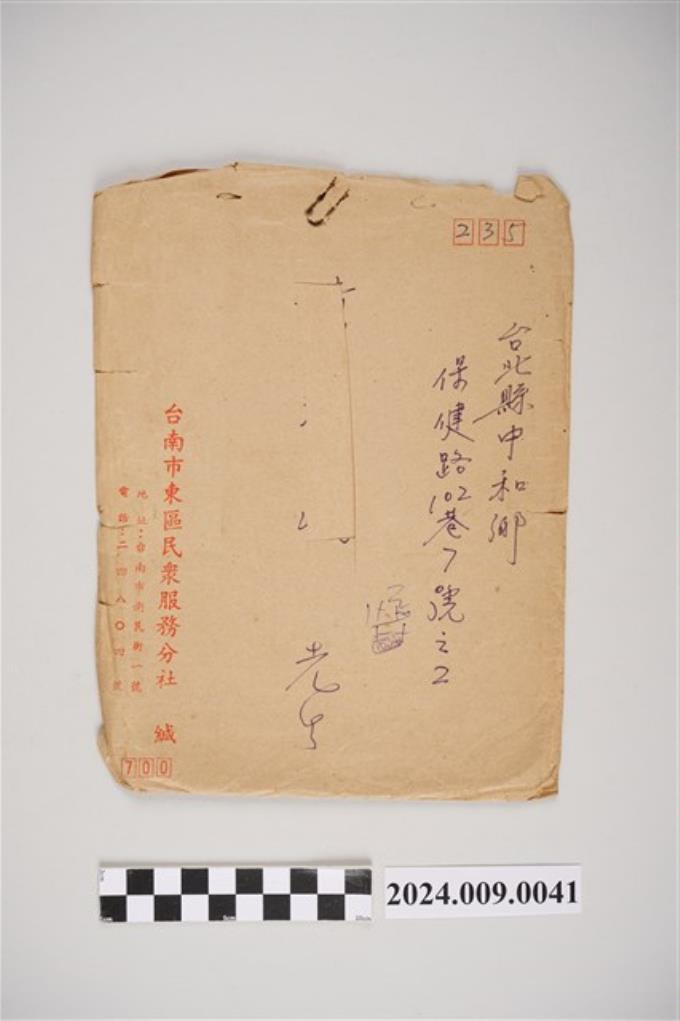 235
台北縣中和鄉
保健路102巷7號之2
先生
台南市東區民衆服務分社 緘
地址：台南市衛民街一號
電話：二四八〇四號
700
2024.009.0041